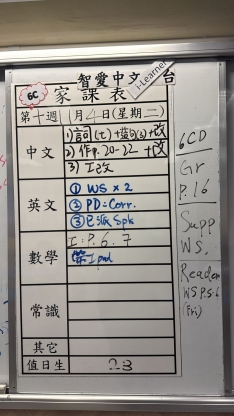 智愛中文 台
i-Learner
6C
家課表
第十週 1月4日(星期二)
中文
1)詞(七)+造句(3)+改
2)作P.20-22+改
3)
英文
① WS x 2
② PD=Corr.
③ 已派 Spk
數學
I: P. 6. 7
Ipad
常識
其它
值日生 23
6CD
Gr
P.16
Supp
WS.
Reader
WS P.5-6
(Fri)